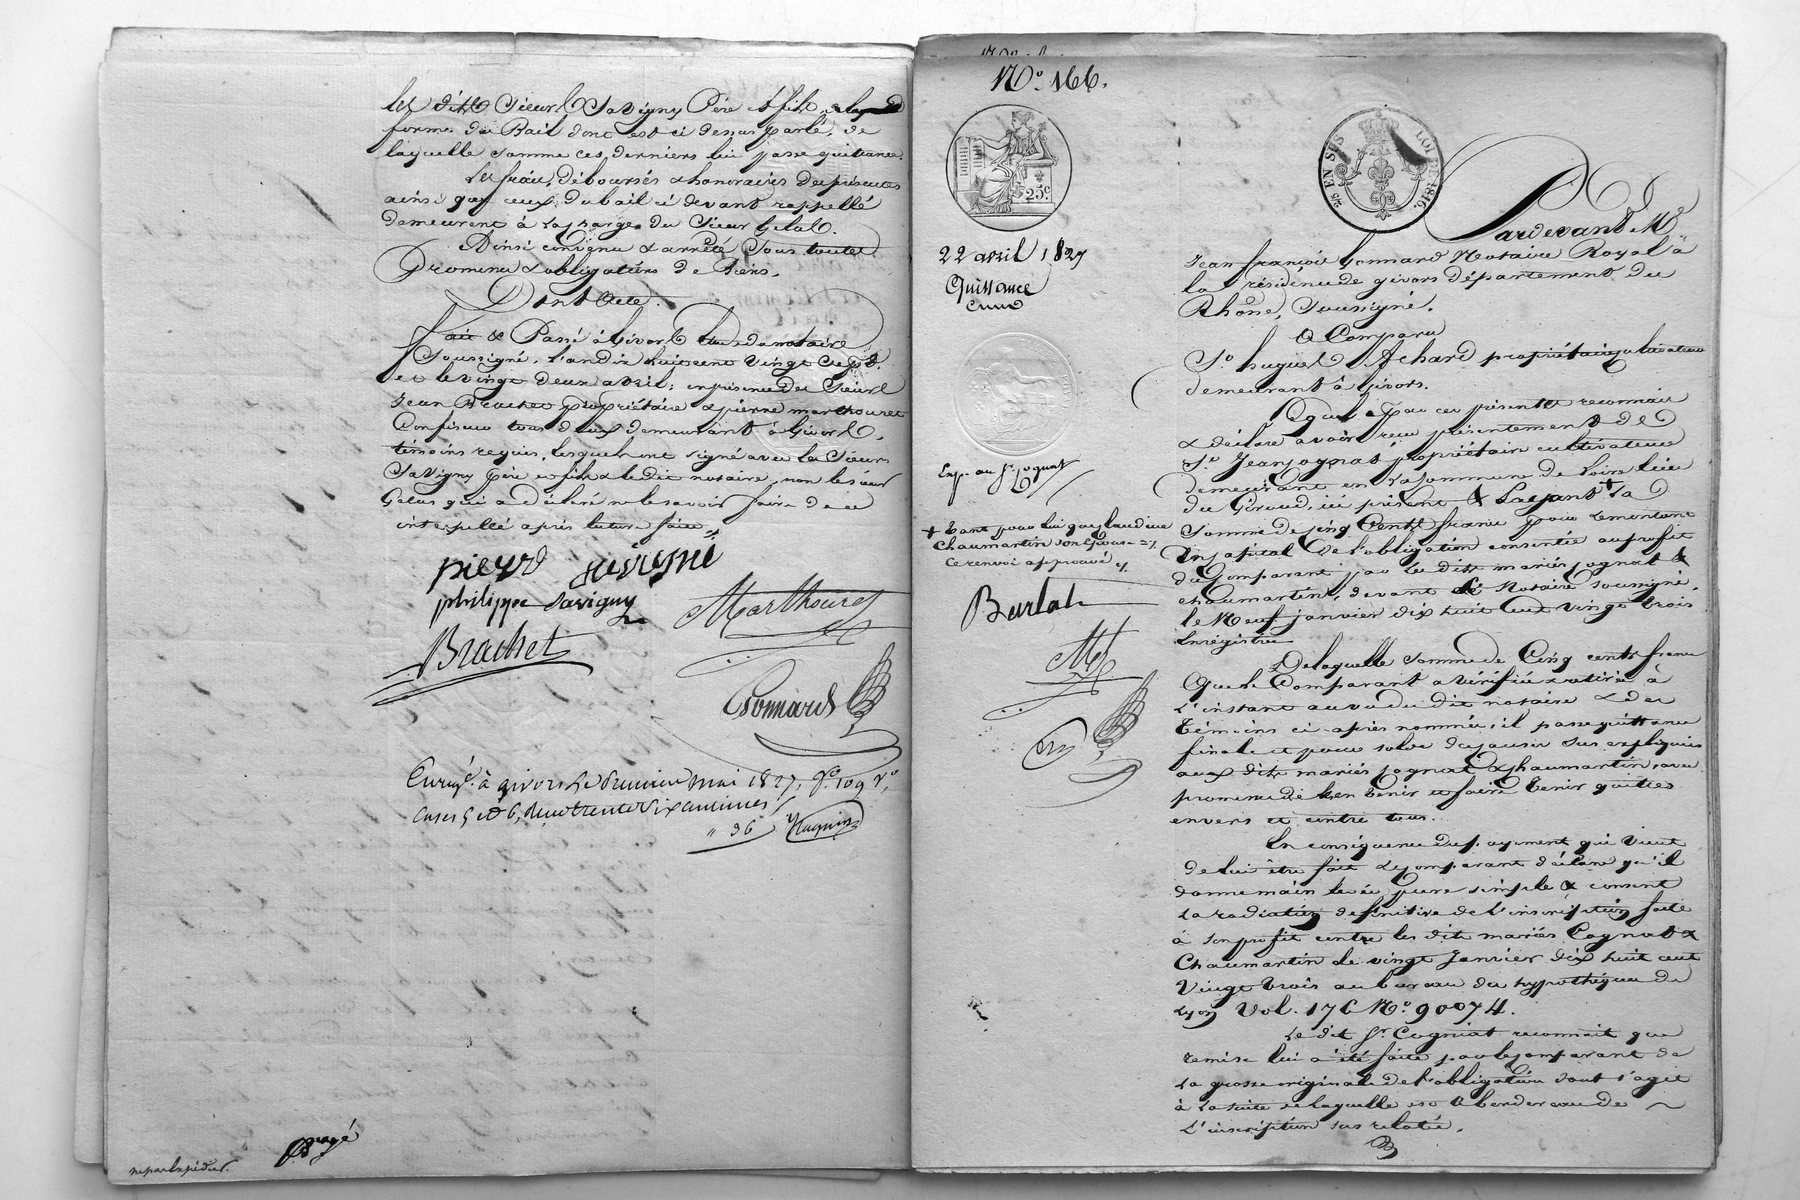 les dits Sieurs Savigny Père et fils, de la
forme du Bail dont est ci dessus parlé, de
laquelle somme ces derniers lui passe quittance.
Les frais, déboursés & honoraires des présentes
ainsi que ceux du bail ci devant rappellé
demeurent à la charge du Sieur Gelas.
Ainsi convenu & arrêté Sous toutes
Promesses & obligations de Biens.
Dont Acte.
fait & Passé à Givors Etude du notaire
Soussigné, L'an dix huit cent vingt Sept
et le vingt deux avril; en présence des Sieurs
Jean Brachet propriétaire & pierre marthouret
Confiseur tous deux demeurant à Givors,
témoins requis, lesquels ont signé avec les Sieurs
Savigny père et fils & le dit notaire, non le sieur
Gelas qui a déclaré ne le savoir faire de ce
interpellé après lecture faite
pierre savigné
philippe Savigny
Marthouret
Brachet
Bonnard
Enregé. à givors le premier mai 1827, fo. 109 vo,
cases 5 et 6, reçu trente six centimes
" 36
N° 166.
25 c.
25 c EN SUS LOI DE 1816.
22 avril 1827
Quittance
Exp. au Sr. Cognat
+ tant pour lui que Claudine
Chaumartin son Epouse
Ce renvoi approuvé
Burlat
Pardevant Me.
Jean françois Bonnard Notaire Royal à
la résidence de givors département du
Rhône, Soussigné.
A Comparu
Sr. hugues Achard propriétaire cultivateur
demeurant à Givors.
Lequel par ces présentes reconnait
& déclare avoir reçu présentement de
Sr. Jean Cognat propriétaire cultivateur
demeurant en la commune de Loire lieu
du Giraud, ici présent & Payant + la
Somme de cinq Cents francs pour le montant
en capital de l'obligation consentie au profit
du Comparant par les dits mariés Cognat &
chaumartin, devant le Notaire soussigné,
le Neuf janvier dix huit cent vingt trois
Enregistrée
De laquelle somme de Cinq cents francs
que le Comparant a vérifiée & retirée à
l'instant au vu du dit notaire & des
témoins ci après nommés, il passe quittance
finale et pour solde des causes sus expliquées
aux dits mariés Cognat & Chaumartin, avec
promesse de les en tenir et faire tenir quittes
envers et contre tous.
En conséquence du payement qui vient
de lui être fait le comparant déclare qu'il
donne main levée pure simple & consent
la radiation définitive de l'inscription faite
à son profit contre les dits mariés Cognat &
Chaumartin le vingt Janvier dix huit cent
Vingt trois au bureau des hypothèques de
Lyon Vol. 176 N° 90074.
Le dit Sr. Cogniat reconnait que
remise lui a été faite par le comparant de
la grosse originale de l'obligation dont s'agit
à la suite de laquelle est le bordereau de
l'inscription sus relatée.